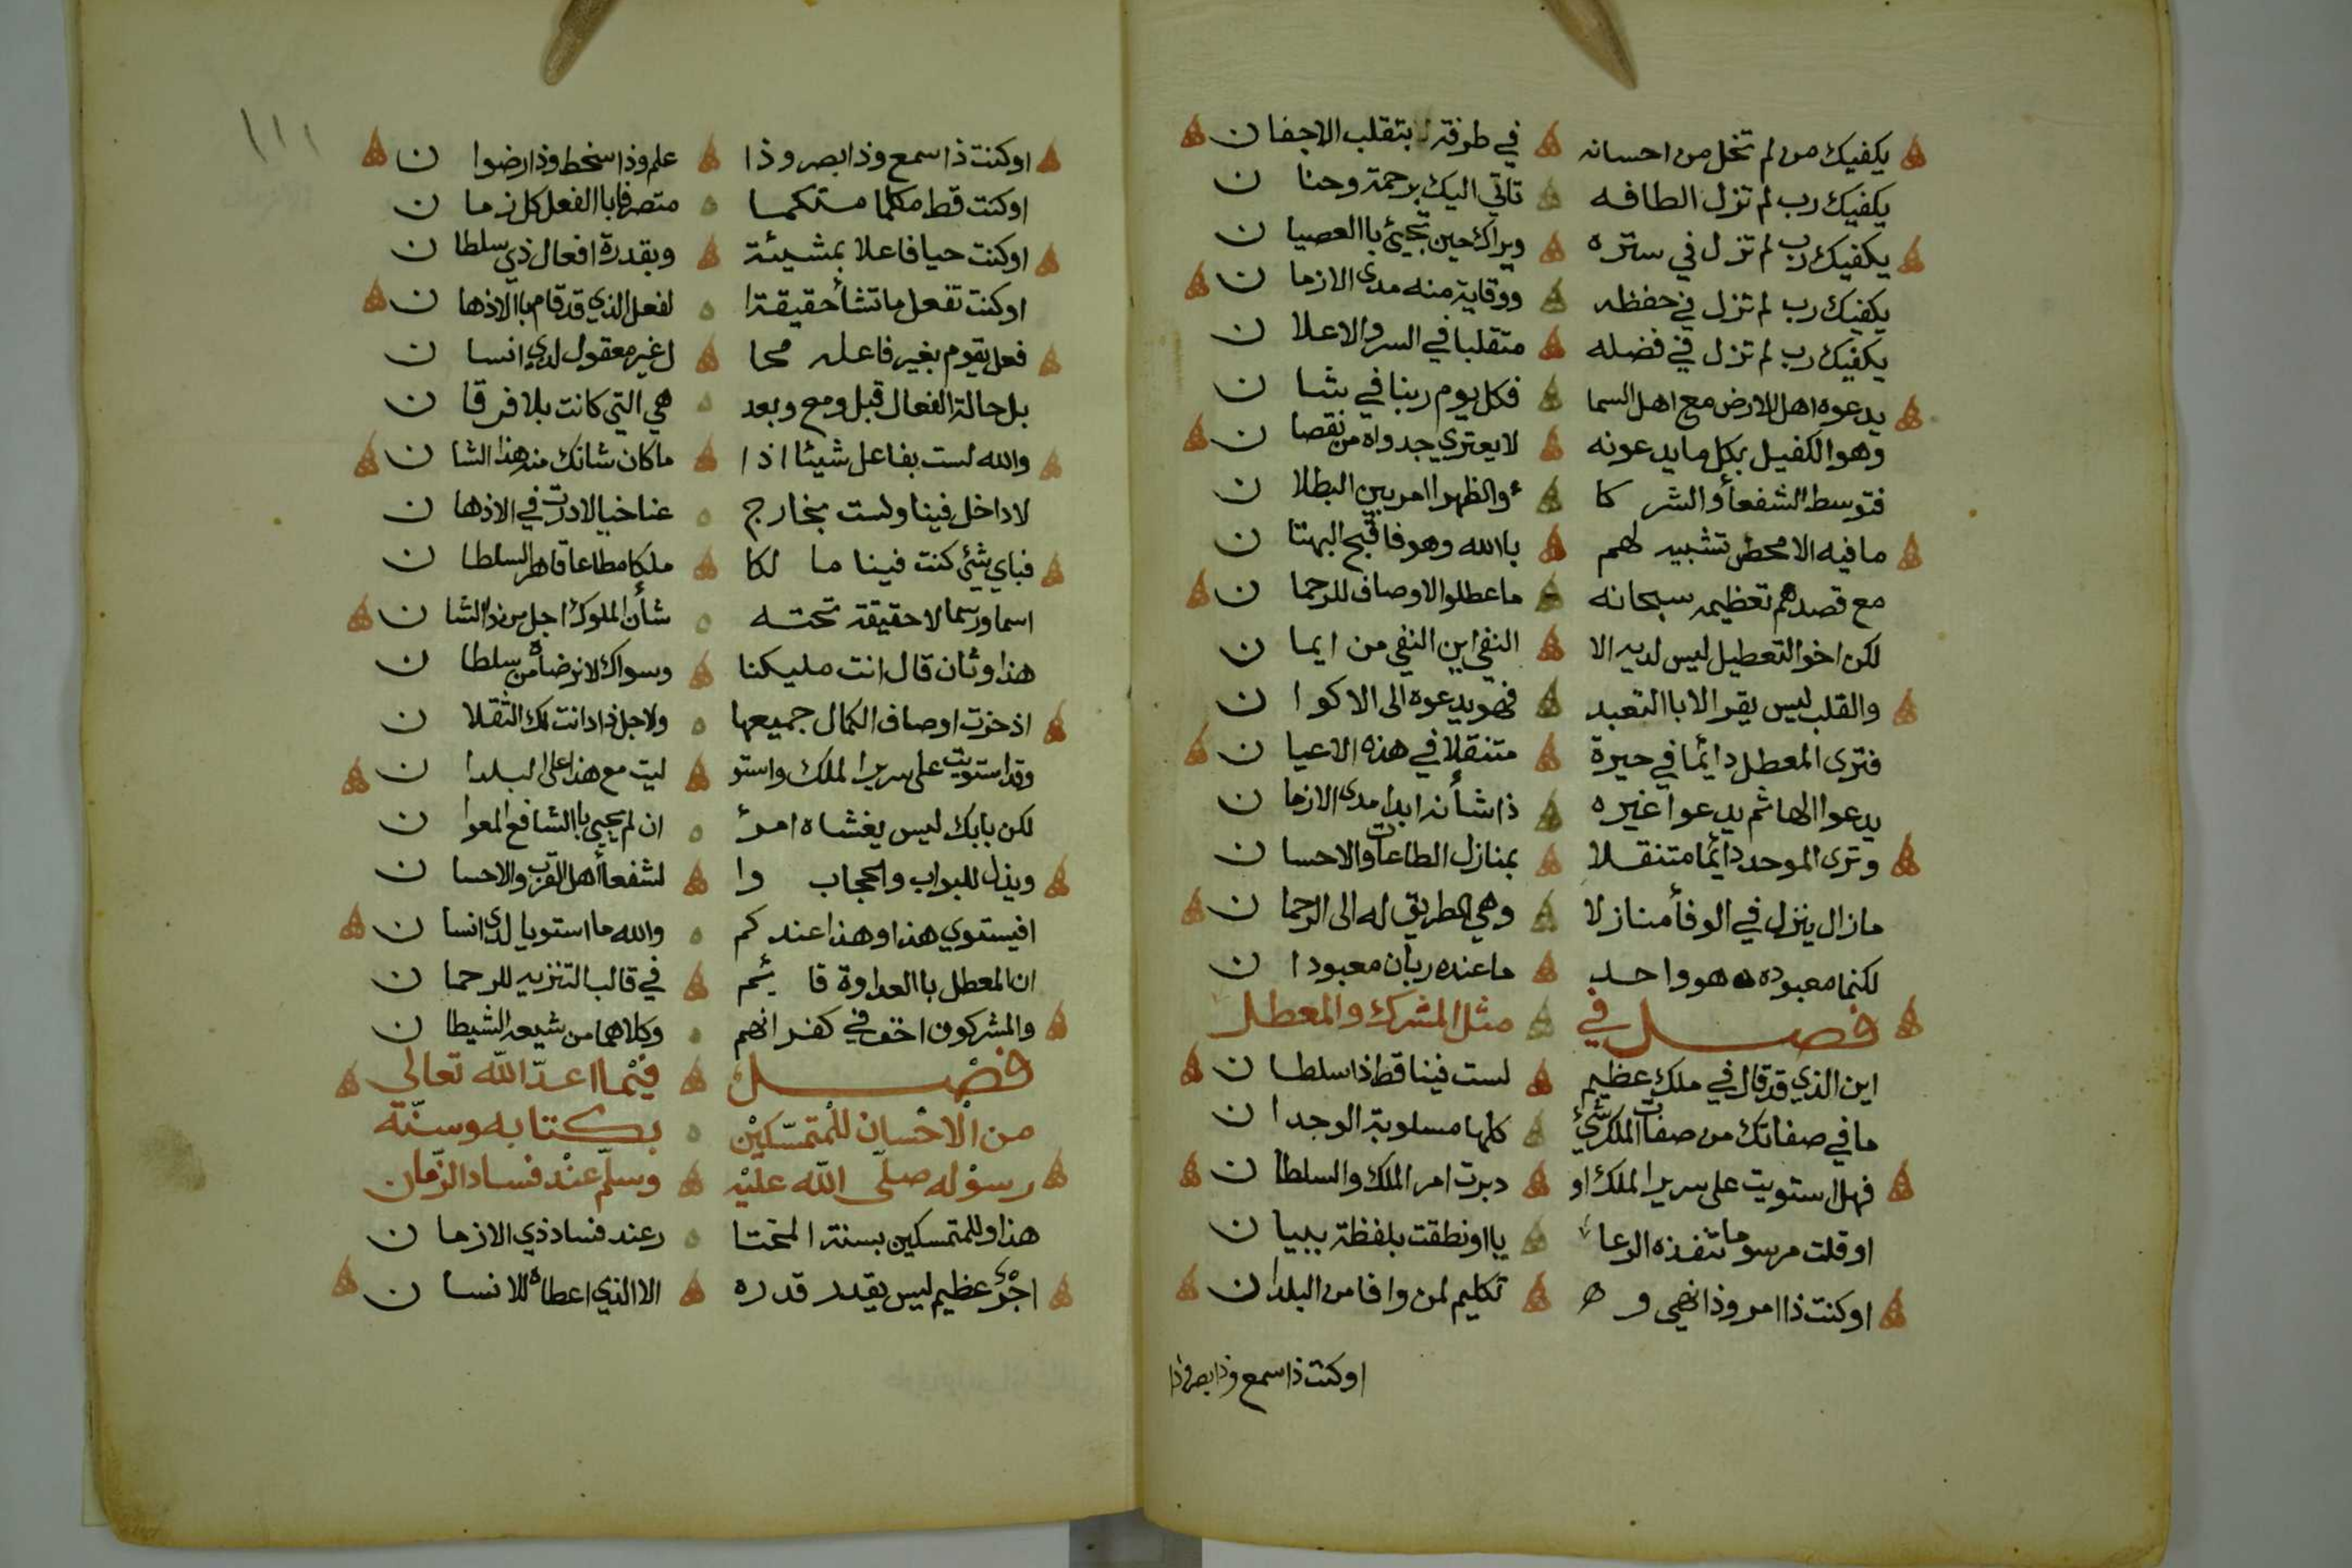 يكفيك من لم تخل من احسانه في طرفة بتقلب الاجفان
يكفيك رب لم تزل الطافه تاتي اليك برحمة وحنان
يكفيك رب لم تزل في ستره ويراك حين تجيئ باالعصيان
يكفيك رب لم تزل في حفظه ووقاية منه مدى الازمان
يكفيك رب لم تزل في فضله متقلبا في السر والاعلان
يدعوه اهل الارض مع اهل السما فكل يوم ربنا في شان
وهو الكفيل بكل ما يدعونه لا يعتري جدواه من نقصان
فتوسط الشفعأ والشركا ء والظهرا امر بين البطلان
ما فيه الا محض تشبيه لهم باالله وهو فاقبح البهتان
مع قصدهم تعظيمه سبحانه ما عطلوا الاوصاف للرحمان
لكن اخو التعطيل ليس لديه الا النفي اين النفي من ايمان
والقلب ليس يقر الا باالتعبد فهو يدعوه الى الاكوان
فترى المعطل دائما في حيرة متنقلا في هذه الاعيان
يدعوا الها ثم يدعوا غيره ذا شأنه ابدا مدى الازمان
وترى الموحد دائما متنقلا بمنازل الطاعات والاحسان
ما زال ينزل في الوفأ منازلا وهي الطريق له الى الرحمان
لكنما معبوده هو واحد ما عنده ربان معبودان
فصل في مثل المشرك والمعطل
اين الذي قد قال في ملك عظيم لست فينا قط ذا سلطان
ما في صفاتك من صفات الملك شيئ كلها مسلوبة الوجدان
فهل استويت على سرير الملك او دبرت امر الملك والسلطان
او قلت مرسوما تنفذه الرعا يا او نطقت بلفظة ببيان
او كنت ذا امر وذا نهي و تكليم لمن وافا من البلدان
او كنت ذا سمع وذا بصر وذا
١١١
او كنت ذا سمع وذا بصر وذا علم وذا سخط وذا رضوان
او كنت قط مكلما متكلما متصرفا باالفعل كل زمان
او كنت حيا فاعلا بمشيئة وبقدرة افعال ذي سلطان
او كنت تفعل ما تشأ حقيقة ا لفعل الذي قد قام باالاذهان
فعل يقوم بغير فاعله محا ل غير معقول لدى انسان
بل حالة الفعال قبل ومع وبعد هي التي كانت بلا فرقان
والله لست بفاعل شيئا اذا ما كان شانك منه هذا الشان
لا داخل فينا ولست بخارج عنا خيالا درت في الاذهان
فباي شئي كنت فينا مالكا ملكا مطاعا قاهر السلطان
اسما ورسما لا حقيقة تحته شأن الملوك اجل من ذا الشان
هذا وثان قال انت مليكنا وسواك لا نرضاه من سلطان
اذ حزت اوصاف الكمال جميعها ولاجل ذا دانت لك الثقلان
وقد استويت على سرير الملك واستو ليت مع هذا على البلدان
لكن بابك ليس يغشاه امرأ ان لم يجئ باالشافع المعوان
ويذل للبواب والحجاب وا لشفعأ أهل القرب والاحسان
افيستوي هذا وهذا عندكم والله ما استويا لدى انسان
ان المعطل باالعداوة قائم في قالب التنزيه للرحمان
والمشركون اخف في كفرانهم وكلاهما من شيعه الشيطان
فصل فيما اعدّ الله تعالى
من الاحسان للمتمسّكين بكتابه وسنّة
رسوله صلّى الله عليه وسلّم عند فساد الزّمان
هذا وللمتمسكين بسنة المختا ر عند فساد ذي الازمان
اجرٌ عظيم ليس يقدر قدره الا الذي اعطاه للانسان